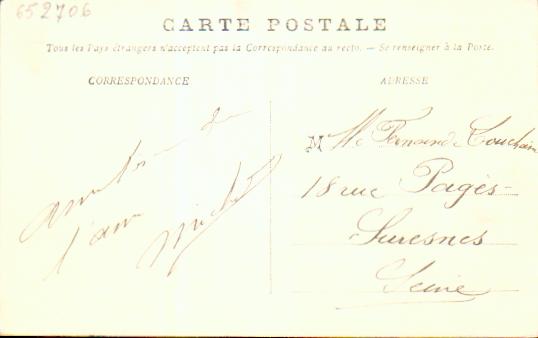 652706
CARTE POSTALE
Tous les Pays étrangers n'acceptent pas la Correspondance au recto. — Se renseigner à la Poste.
CORRESPONDANCE
ADRESSE
de
l'ami
Michel
M Fernande
18 rue Pagès
Suresnes
Seine